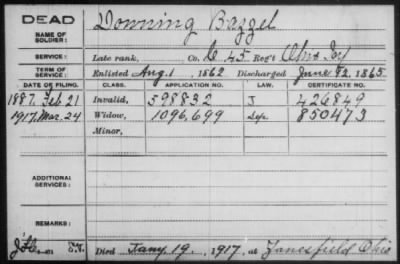 DEAD Downing Bazzel
NAME OF SOLDIER:
SERVICE: Late rank, Co. G 45 Reg't Ohio Inf
TERM OF SERVICE: Enlisted Aug. 1, 1862 Discharged June 12, 1865
DATE OF FILING. CLASS. APPLICATION NO. LAW. CERTIFICATE NO.
1887. Feb 21 Invalid, 598832 J 426849
1917. Mar. 24 Widow, 1096,699 Sep 850473
Minor,
ADDITIONAL SERVICES:
REMARKS:
Died Jany. 19, 1917, at Zanesfield Ohio